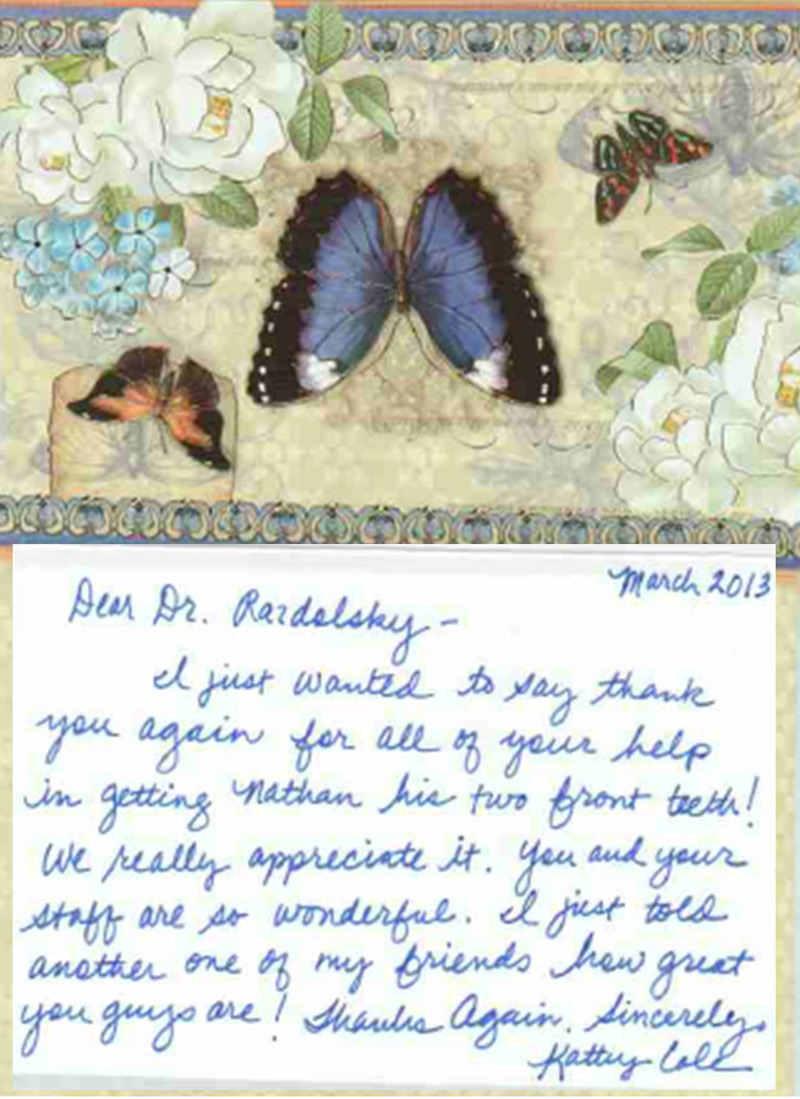 March 2013
Dear Dr. Razdolsky -
I just wanted to say thank
you again for all of your help
in getting Nathan his two front teeth!
We really appreciate it. You and your
staff are so wonderful. I just told
another one of my friends how great
you guys are! Thanks Again. Sincerely,
Kathy Cole